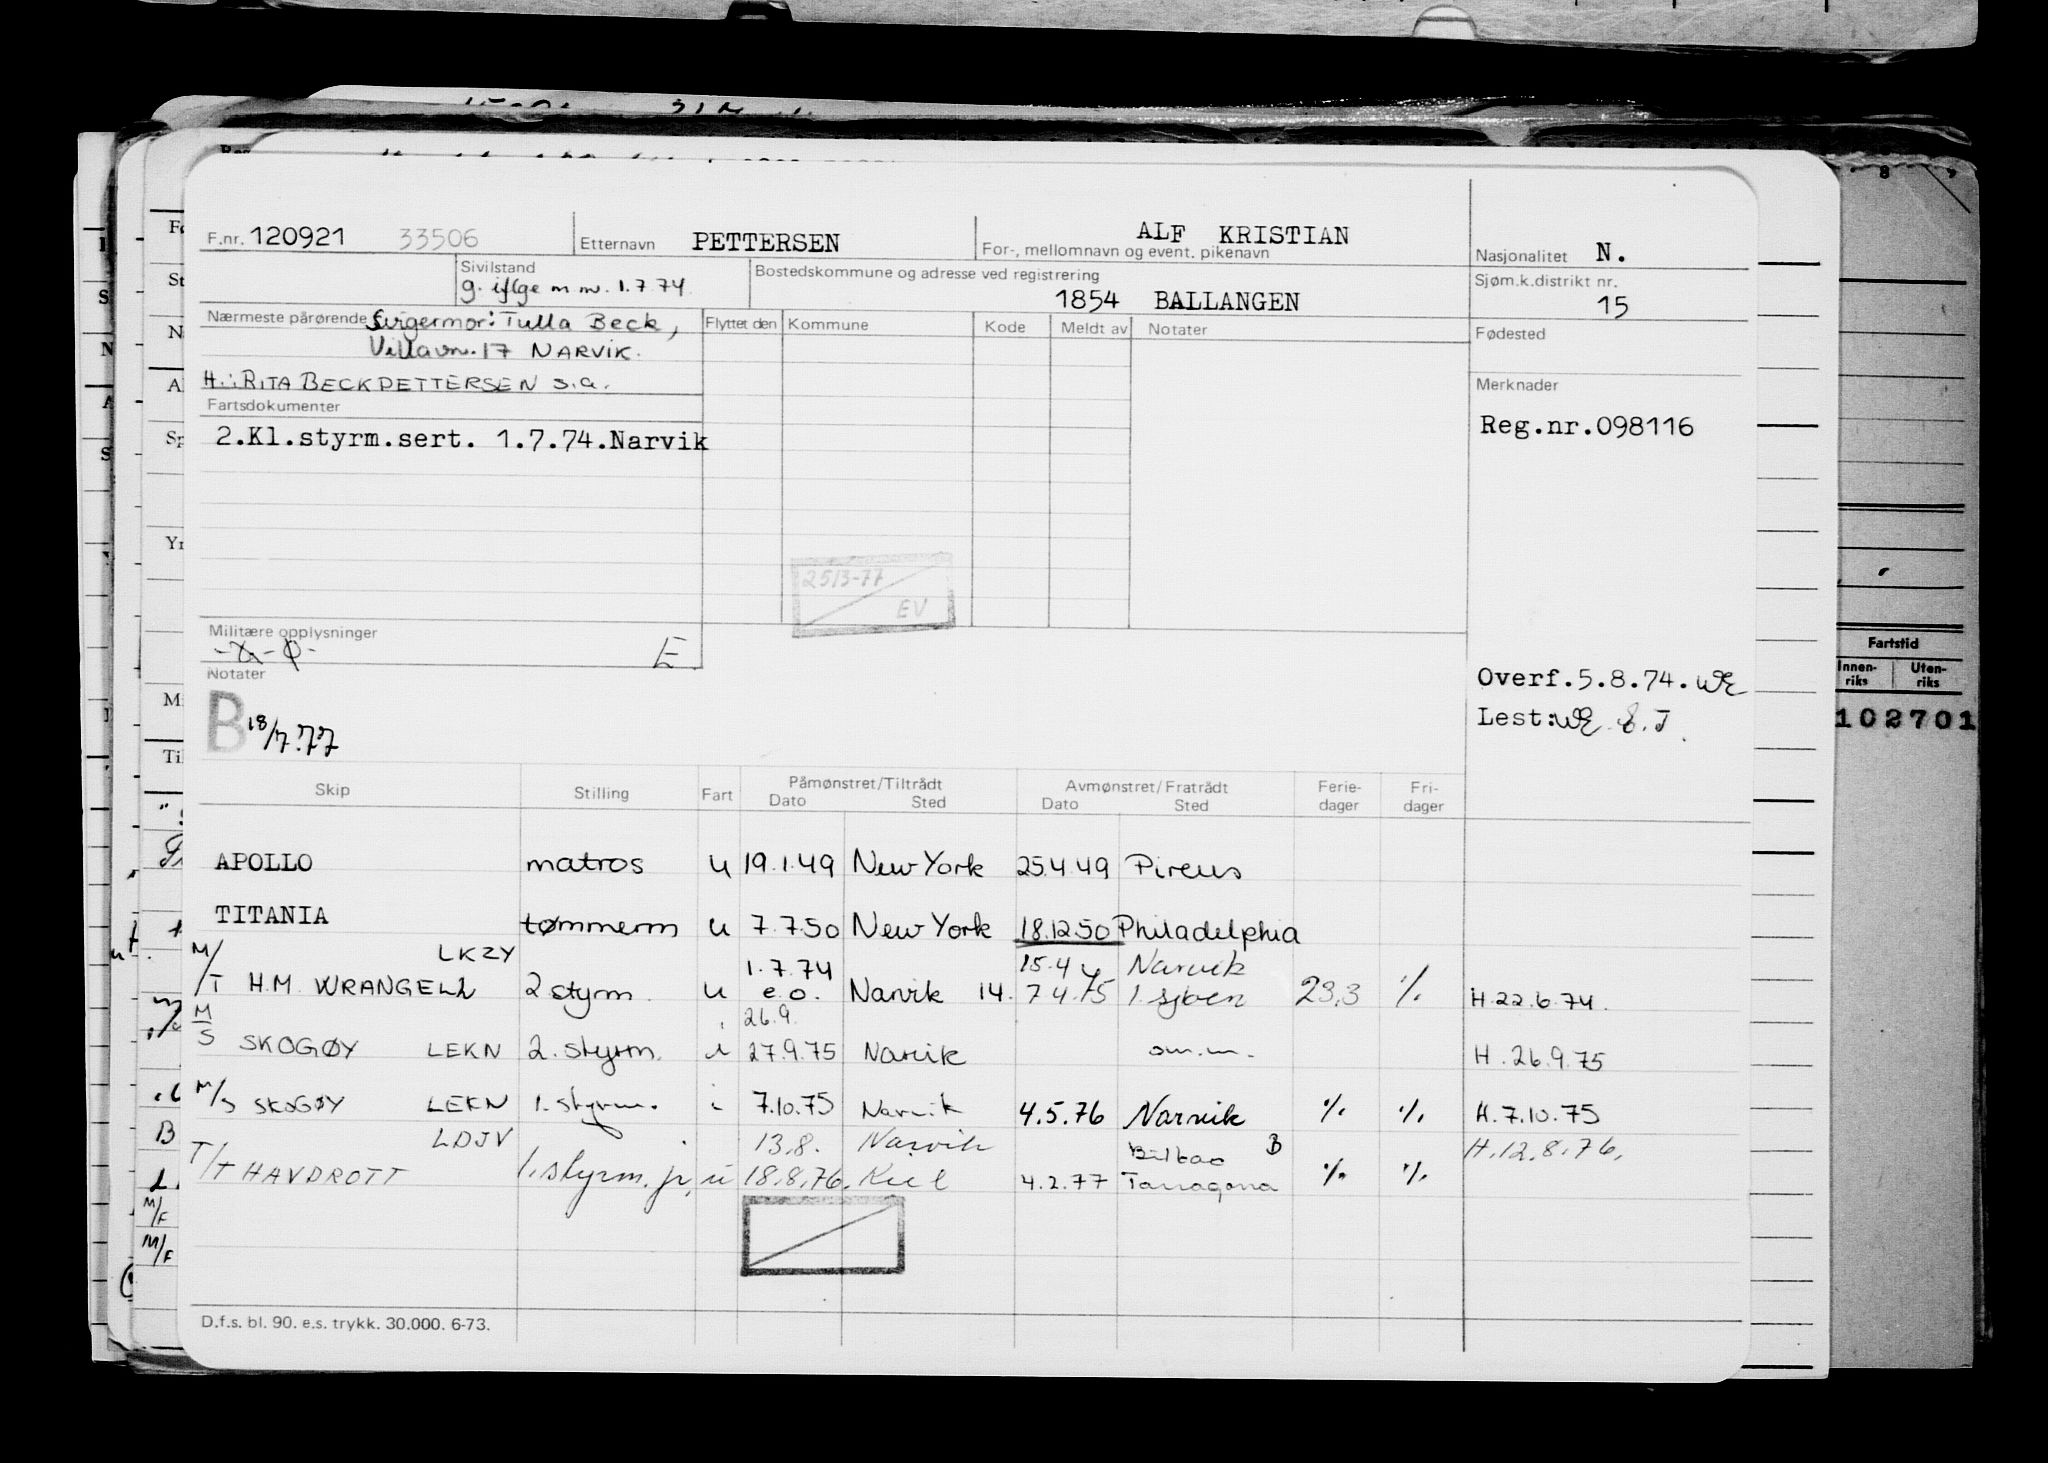 F.nr. 120921 33506 Etternavn PETTERSEN ALF KRISTIAN
For-, mellomnavn og event. pikenavn
Nasjonalitet N.
Sivilstand
g. iflge m m. 1.7.74
Bostedskommune og adresse ved registrering
1854 BALLANGEN
Sjøm.k.distrikt nr.
15
Nærmeste pårørende Svigermor: Tulla Beck,
Villavn. 17 NARVIK.
H.: RITA BECK PETTERSEN s.a.
Flyttet den Kommune Kode Meldt av Notater
Fødested
Merknader
Reg.nr.098116
Fartsdokumenter
2.Kl.styrm.sert. 1.7.74.Narvik
25/3-77
EV
Militære opplysninger
E
Notater
B 18/7.77
Overf.5.8.74.WE
Lest:WE
Fartstid
Innen-riks Uten-riks
102701
Skip Stilling Fart Påmønstret/Tiltrådt Avmønstret/Fratrådt Ferie-dager Fri-dager
Dato Sted Dato Sted
APOLLO matros u 19.1.49 New York 25.4.49 Pireus
TITANIA tømmerm u 7.7.50 New York 18.12.50 Philadelphia
M/T H.M. WRANGELL LKZY 2 styrm. u 1.7.74 e.o. Narvik 14. 15.4 7.4.75 Narvik i sjøen 23,3 % H.22.6.74.
M/S SKOGØY LEKN 2. styrm. i 26.9. 27.9.75 Narvik om.m. H.26.9.75
M/S SKOGØY LEKN 1. styrm. i 7.10.75 Narvik 4.5.76 Narvik % % H.7.10.75
T/T HAVDROTT LDJV 1. styrm. jr. u 13.8. 18.8.76. Narvik Kiel 4.2.77 Bilbao B Tarragona % % H.12.8.76.
D.f.s. bl. 90. e.s. trykk. 30.000. 6-73.